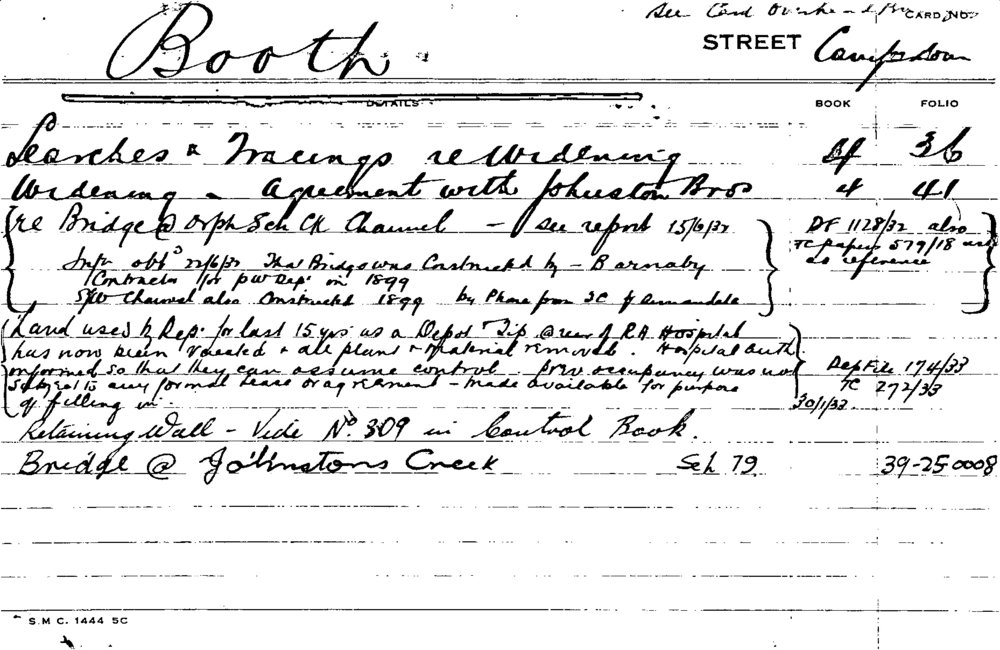 See Card
CARD NO.
Booth STREET Camperdown
DETAILS BOOK FOLIO
Searches & Tracings re Widening 4 36
Widening - Agreement with Johnston Bros 4 41
re Bridge @ Orph Sch Ck Channel - see report 15/6/32 DF 1128/32 also
TC papers 579/18
as reference
Infn obtd 22/6/32 that Bridge was Constructed by - Barnaby
Contractor for PW Dep. in 1899
Channel also Constructed 1899 by Phone from SC of Annandale
Land used by Dep. for last 15 yrs as a Depot Tip @ rear of RA Hospital
has now been vacated & all plant & material removed. Hospital auth
informed so that they can assume control. prev occupancy was not
subject to any formal lease or agreement - made available for purpose
of filling in.
Dep File 174/33
TC 272/33
30/1/33
Retaining Wall - Vide No. 309 in Control Book.
Bridge @ Johnstons Creek Sch 79. 39-25-0008
S.M.C. 1444 5C